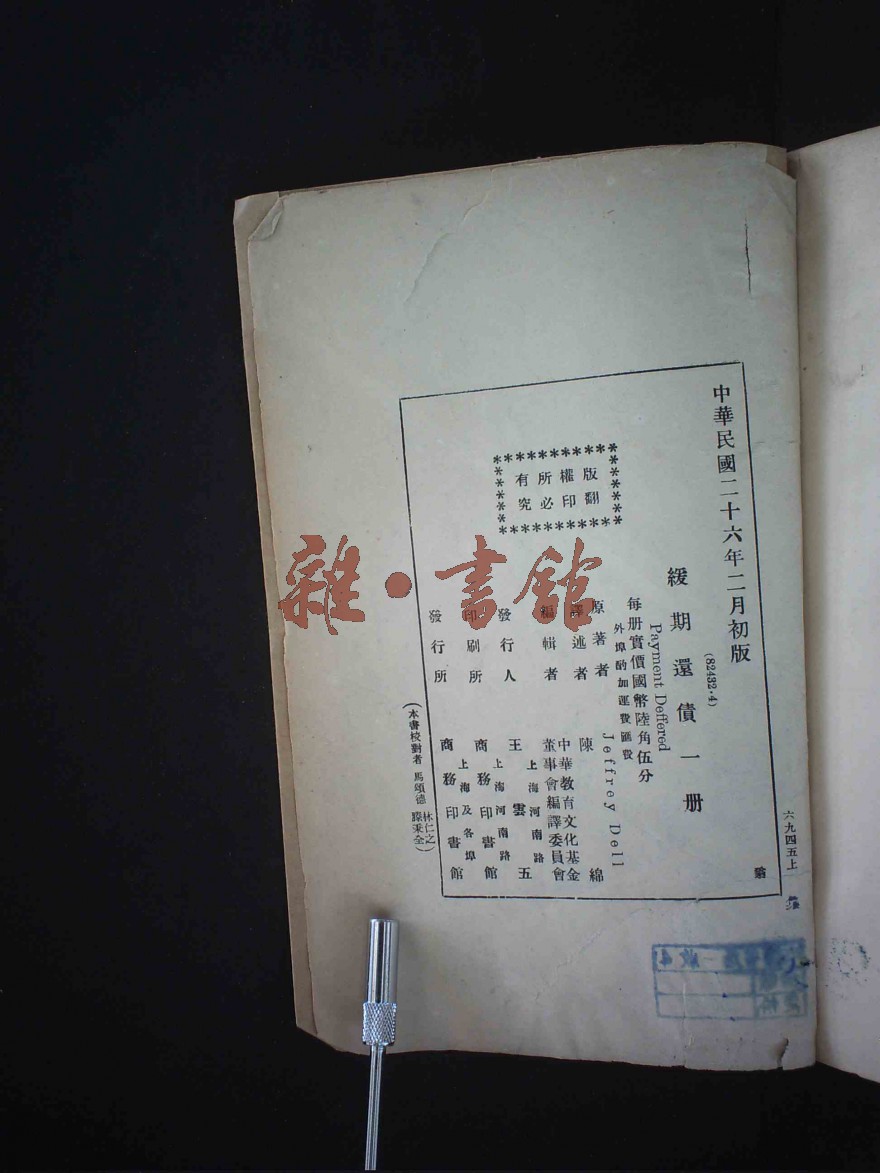 中華民國二十六年二月初版
(82432·4)
緩期還債一册
Payment Deffered
每册實價國幣陸角伍分
外埠酌加運費匯費
版權所有
翻印必究
原著者 Jeffrey Dell
譯述者 陳綿
編輯者 中華教育文化基金董事會編譯委員會
發行人 王雲五
上海河南路
印刷所 商務印書館
上海河南路
發行所 商務印書館
上海及各埠
(本書校對者 馬頌德 林仁之 滕秉全)
六九四五上
雜·書館